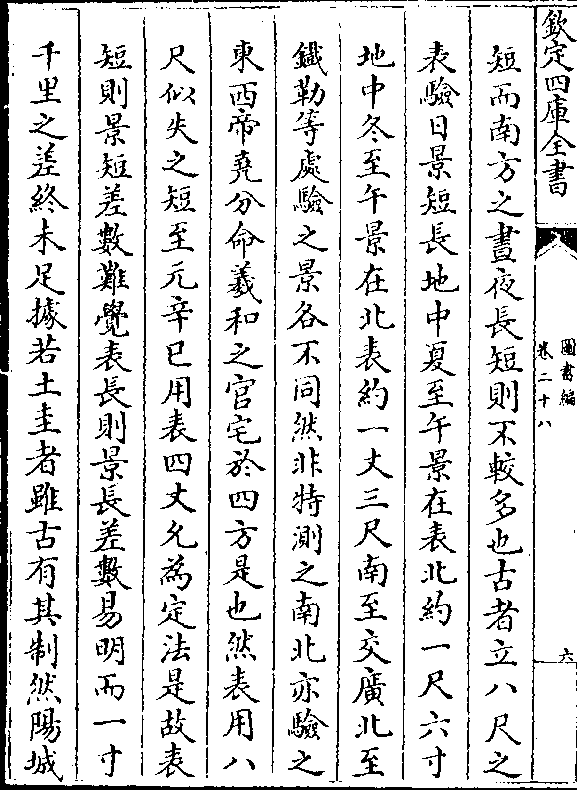 欽定四庫全書
圖書編
卷二十八
六
短而南方之晝夜長短則不較多也古者立八尺之
表驗日景短長地中夏至午景在表北約一尺六寸
地中冬至午景在北表約一丈三尺南至交廣北至
鐵勒等處驗之景各不同然非特測之南北亦驗之
東西帝堯分命羲和之官宅於四方是也然表用八
尺似失之短至元辛巳用表四丈允為定法是故表
短則景短差數難覺表長則景長差數易明而一寸
千里之差終未足據若土圭者雖古有其制然陽城